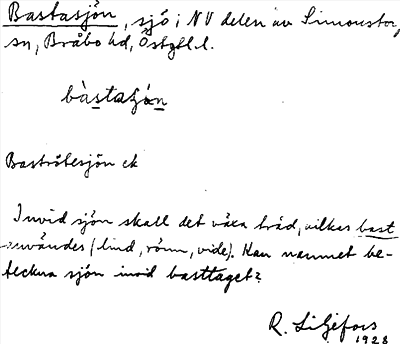 Bastasjön, sjö i NV delen av Simonstorps
sn, Bråbo hd, Östgtl. l.
bàstaʃǿn
Baströtesjön ek
Invid sjön skall det växa träd, vilkas bast
användes (lind, rönn, vide). Kan namnet be-
teckna sjön invid basttaget?
R. Liljefors
1928